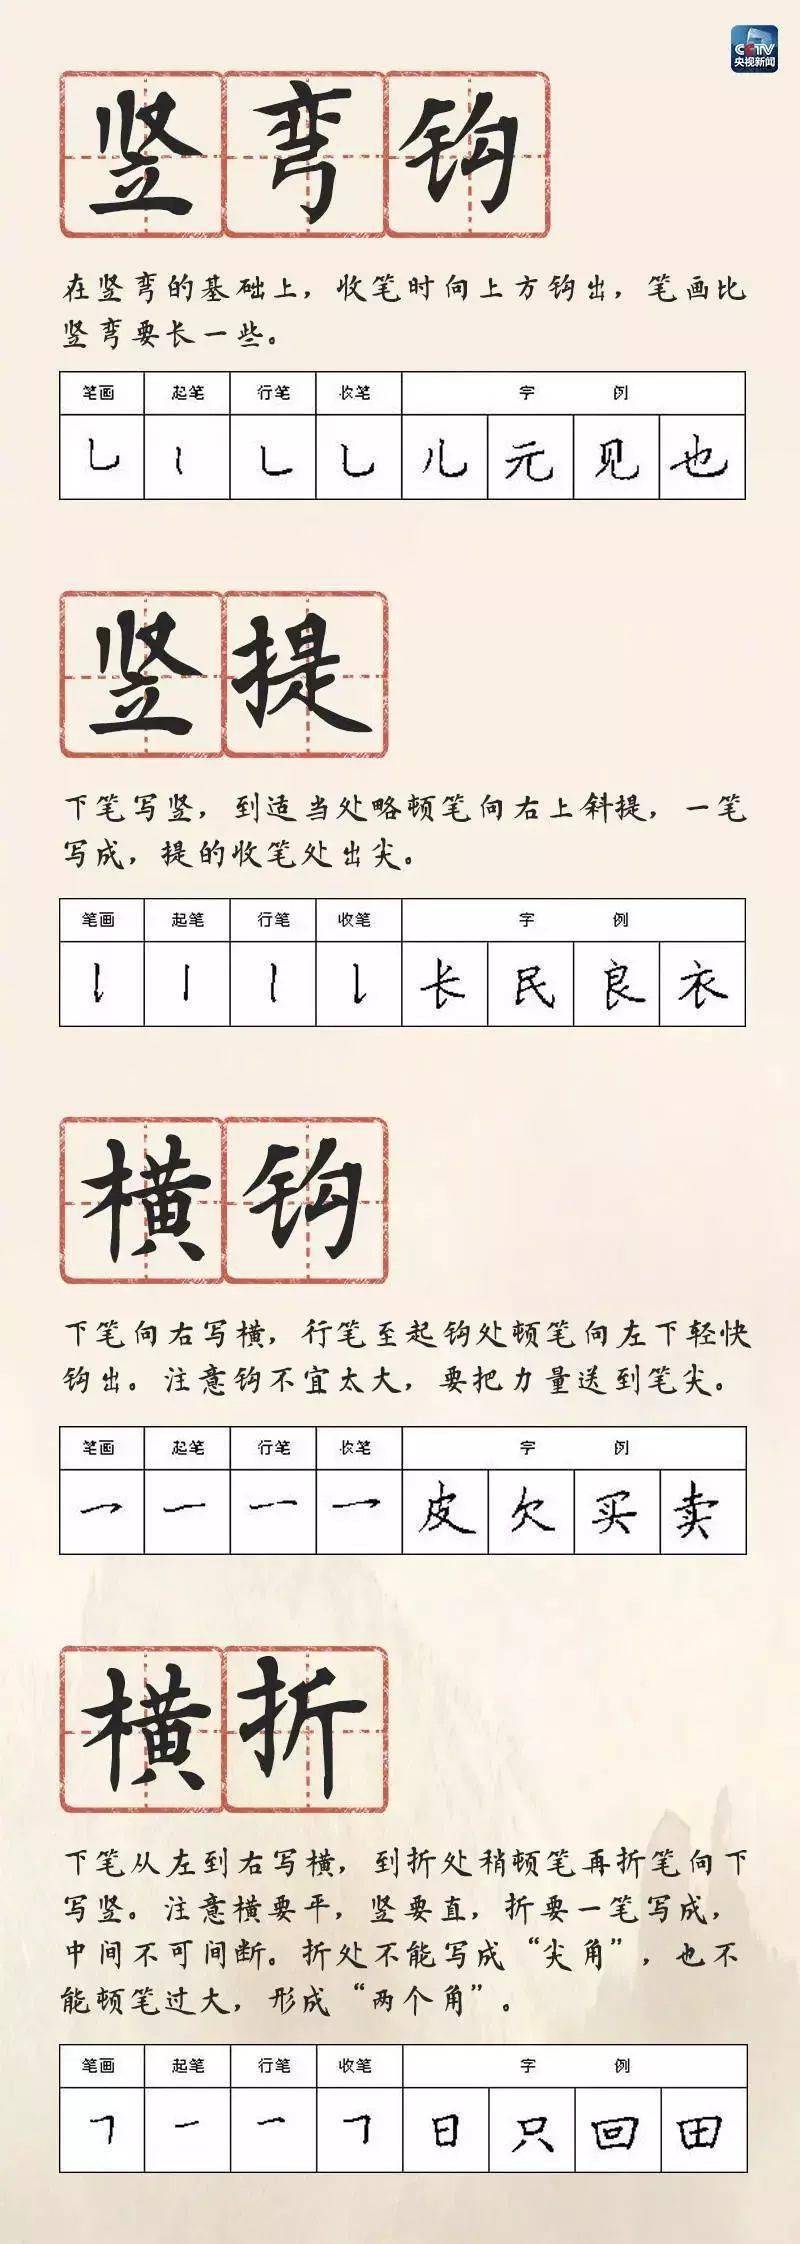 CCTV
央视新闻
竖弯钩
在竖弯的基础上，收笔时向上方钩出，笔画比
竖弯要长一些。
笔画 起笔 行笔 收笔 字例
乚 丨 ㇄ 乚 儿 元 见 也
竖提
下笔写竖，到适当处略顿笔向右上斜提，一笔
写成，提的收笔处出尖。
笔画 起笔 行笔 收笔 字例
𠄌 丨 丨 𠄌 长 民 良 衣
横钩
下笔向右写横，行笔至起钩处顿笔向左下轻快
钩出。注意钩不宜太大，要把力量送到笔尖。
笔画 起笔 行笔 收笔 字例
乛 一 一 乛 皮 欠 买 卖
横折
下笔从左到右写横，到折处稍顿笔再折笔向下
写竖。注意横要平，竖要直，折要一笔写成，
中间不可间断。折处不能写成“尖角”，也不
能顿笔过大，形成“两个角”。
笔画 起笔 行笔 收笔 字例
𠃍 一 一 𠃍 日 只 回 田